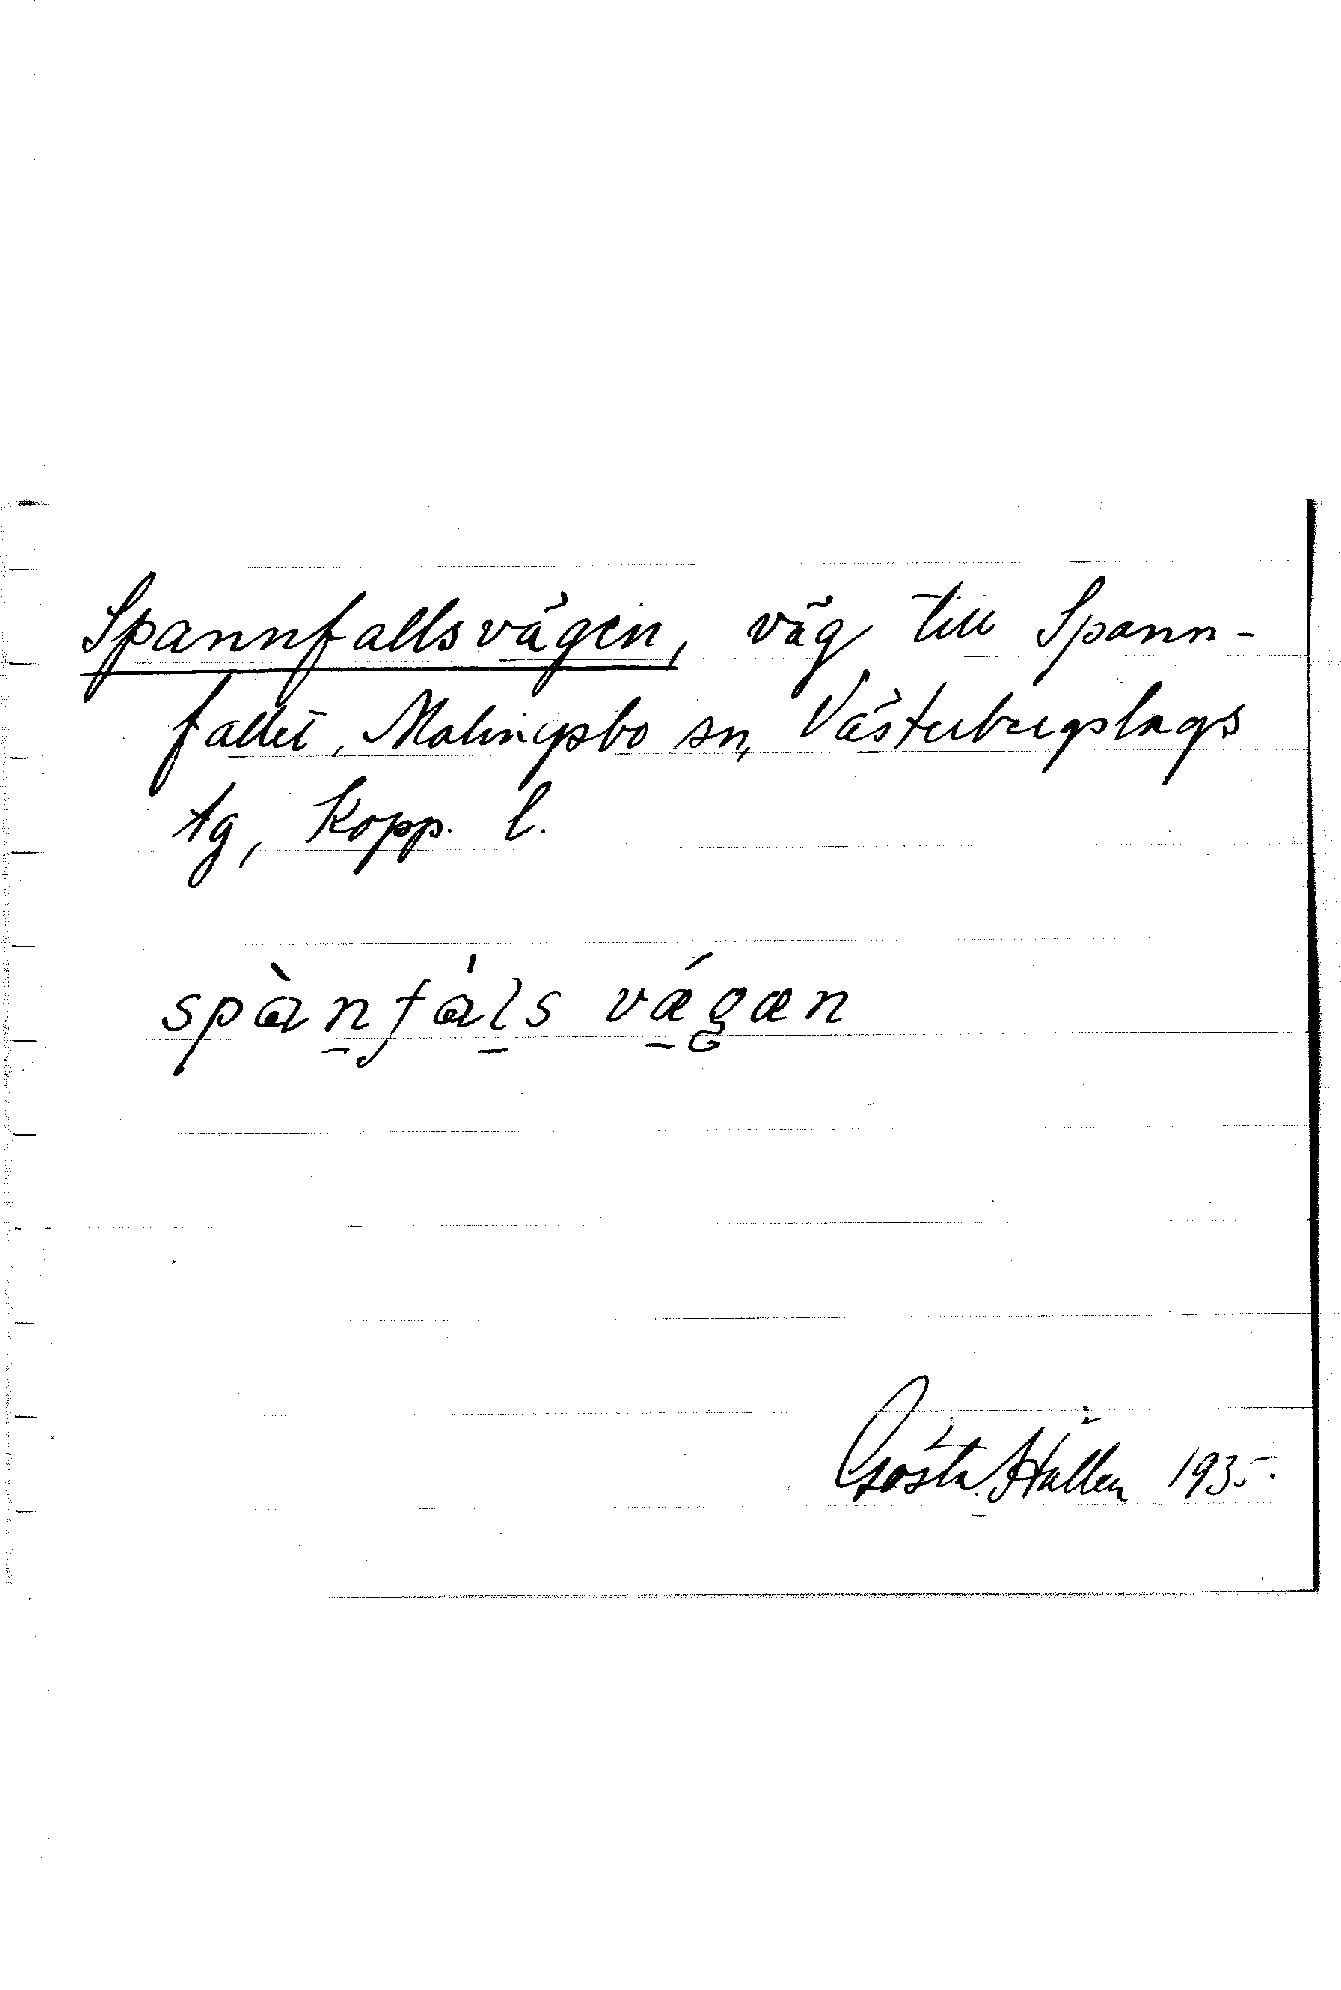 Spannfallsvägen, väg till Spann-
fallet, Malingsbo sn, Västerbergslags
tg, Kopp. l.
spànfáls vǽgæn
Gösta Hällen 1935.